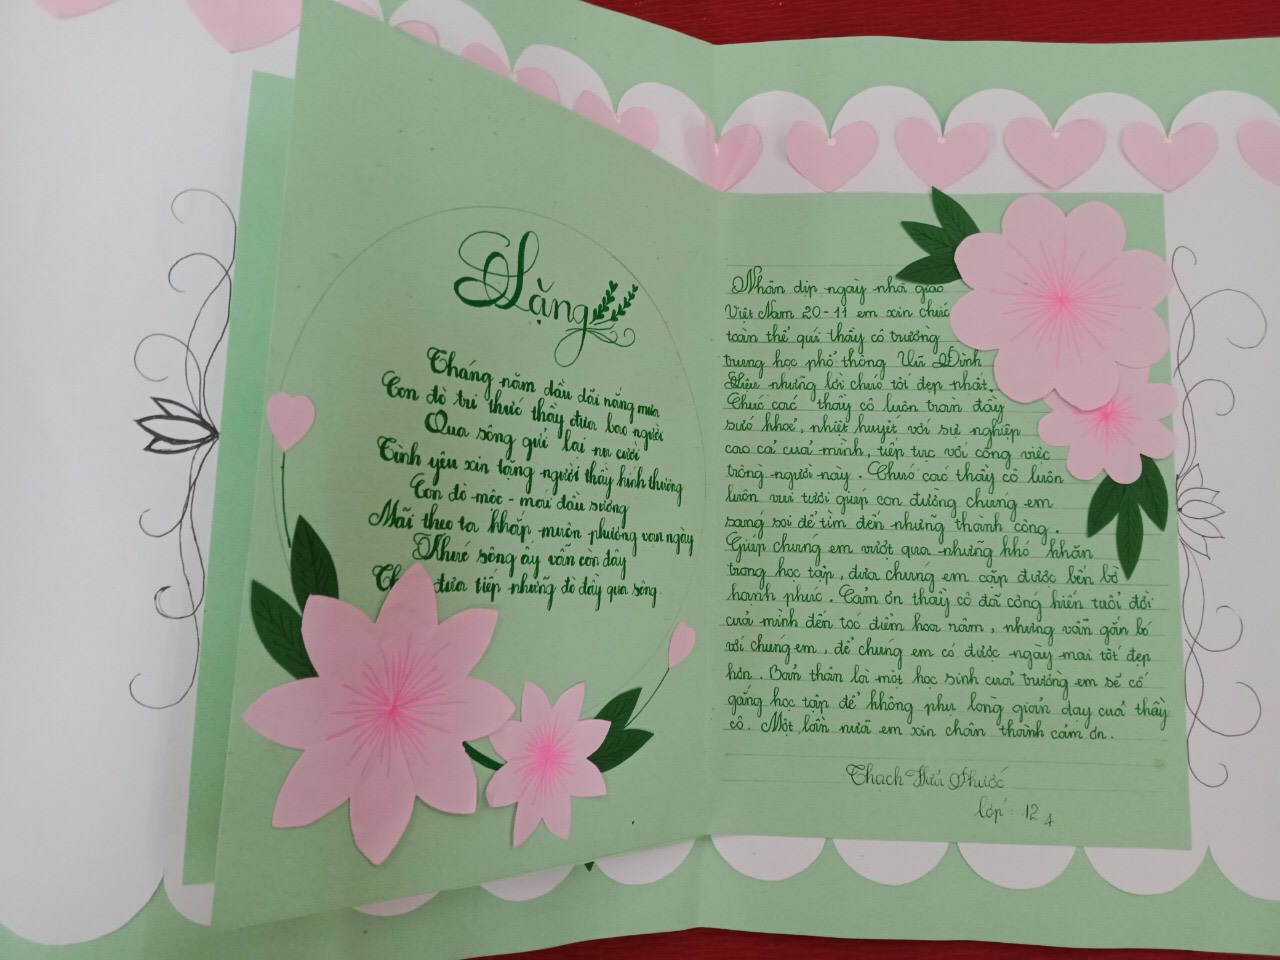 Lặng
Tháng năm dầu dãi nắng mưa
Con đò tri thức thầy đưa bao người
Qua sông gửi lại nụ cười
Tình yêu xin tặng người thầy kính thương
Con đò mộc - mái đầu sương
Mãi theo ta khắp muôn phương vạn ngày
Khúc sông ấy vẫn còn đây
đưa tiếp những đò đầy qua sông.
Nhân dịp ngày nhà giáo
Việt Nam 20-11 em xin chúc
toàn thể quí thầy cô trường
trung học phổ thông Vũ Đình
Liệu những lời chúc tốt đẹp nhất.
Chúc các thầy cô luôn tràn đầy
sức khoẻ, nhiệt huyết với sự nghiệp
cao cả của mình, tiếp tục với công việc
trồng người này. Chúc các thầy cô luôn
luôn vui tươi giúp con đường chúng em
sáng soi để tìm đến những thành công.
Giúp chúng em vượt qua những khó khăn
trong học tập, đưa chúng em cập được bến bờ
hạnh phúc. Cảm ơn thầy cô đã cống hiến tuổi đời
của mình đến tóc điểm hoa râm, nhưng vẫn gắn bó
với chúng em, để chúng em có được ngày mai tốt đẹp
hơn. Bản thân là một học sinh của trường em sẽ cố
gắng học tập để không phụ lòng giản dạy của thầy
cô. Một lần nữa em xin chân thành cảm ơn.
Thạch Hữu Phước
lớp: 12 4